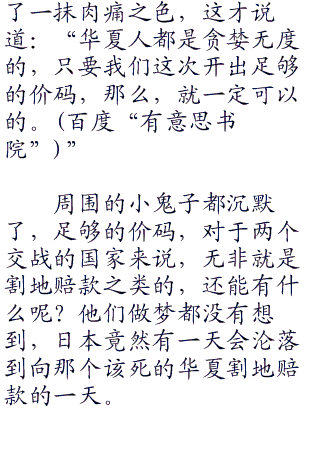 了一抹肉痛之色，这才说
道：“华夏人都是贪婪无度
的，只要我们这次开出足够
的价码，那么，就一定可以
的。(百度“有意思书
院”)”
周围的小鬼子都沉默
了，足够的价码，对于两个
交战的国家来说，无非就是
割地赔款之类的，还能有什
么呢？他们做梦都没有想
到，日本竟然有一天会沦落
到向那个该死的华夏割地赔
款的一天。